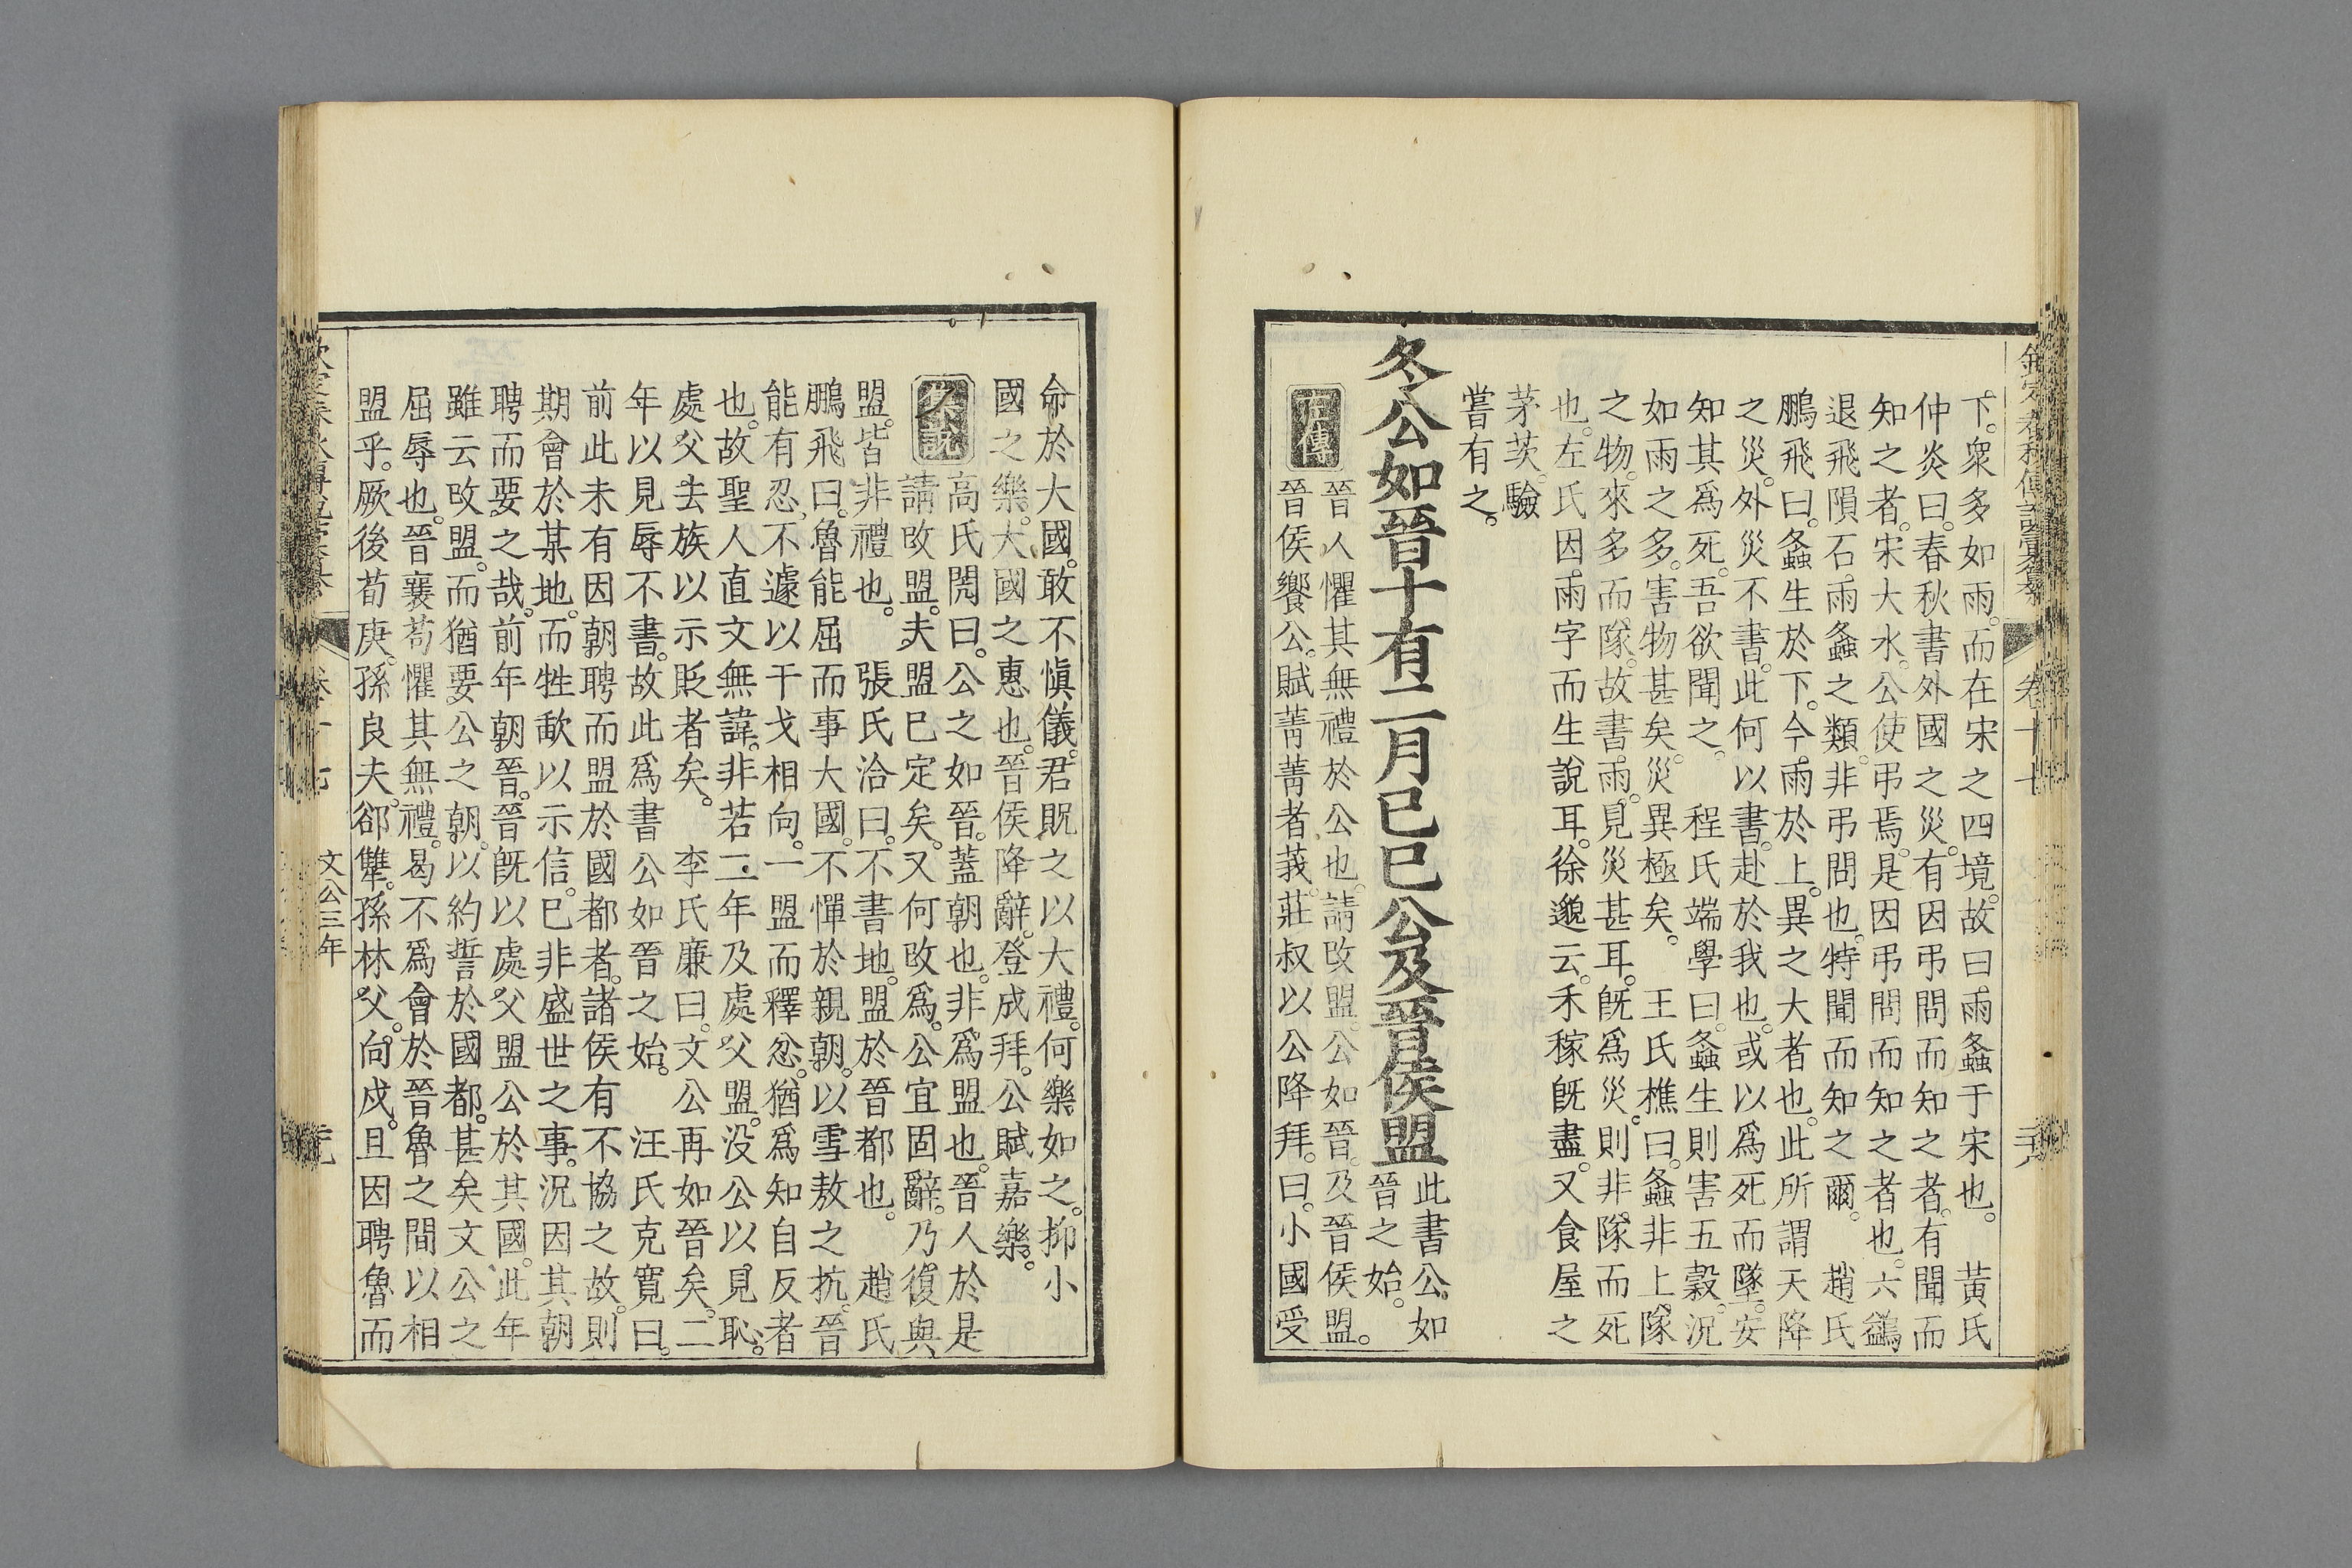 下。衆多如雨。而在宋之四境。故曰雨螽于宋也。　黃氏
仲炎曰。春秋書外國之災。有因弔問而知之者。有聞而
知之者。宋大水。公使弔焉。是因弔問而知之者也。六鷁
退飛隕石。雨螽之類。非弔問也。特聞而知之爾。　趙氏
鵬飛曰。螽生於下。今雨於上。異之大者也。此所謂天降
之災。外災不書。此何以書。赴於我也。或以爲死而墜。安
知其爲死。吾欲聞之。　程氏端學曰。螽生則害五穀。況
如雨之多。害物甚矣。災異極矣。　王氏樵曰。螽非上隊
之物。來多而隊。故書雨。見災甚耳。旣爲災。則非隊而死
也。左氏因雨字而生說耳。徐邈云。禾稼旣盡。又食屋之
茅茨。驗
嘗有之。
冬公如晉十有二月已巳公及晉侯盟
此書公。如
晉之始。
左傳
晉人懼其無禮於公也。請攺盟。公如晉。及晉侯盟。
晉侯饗公。賦菁菁者莪。莊叔以公降拜。曰。小國受
卷十七
命於大國。敢不愼儀。君貺之以大禮。何樂如之。抑小
國之樂。大國之惠也。晉侯降辭。登成拜。公賦嘉樂。
集說
高氏閌曰。公之如晉。蓋朝也。非爲盟也。晉人於是
請攺盟。夫盟已定矣。又何攺爲。公宜固辭。乃復與
盟。皆非禮也。　張氏洽曰。不書地。盟於晉都也。　趙氏
鵬飛曰。魯能屈而事大國。不憚於親朝。以雪敖之抗。晉
能有忍。不遽以干戈相向。一盟而釋忿。猶爲知自反者
也。故聖人直文無諱。非若二年及處父盟。没公以見恥。
處父去族以示貶者矣。　李氏廉曰。文公再如晉矣。二
年以見辱不書。故此爲書公如晉之始。　汪氏克寛曰。
前此未有因朝聘而盟於國都者。諸侯有不協之故。則
期會於某地。而牲歃以示信。已非盛世之事。況因其朝
聘而要之哉。前年朝晉。晉旣以處父盟公於其國。此年
雖云攺盟。而猶要公之朝。以約誓於國都。甚矣文公之
屈辱也。晉襄苟懼其無禮。曷不爲會於晉魯之間以相
盟乎。厥後荀庚。孫良夫。郤犨。孫林父。向戌。且因聘魯而
文公三年